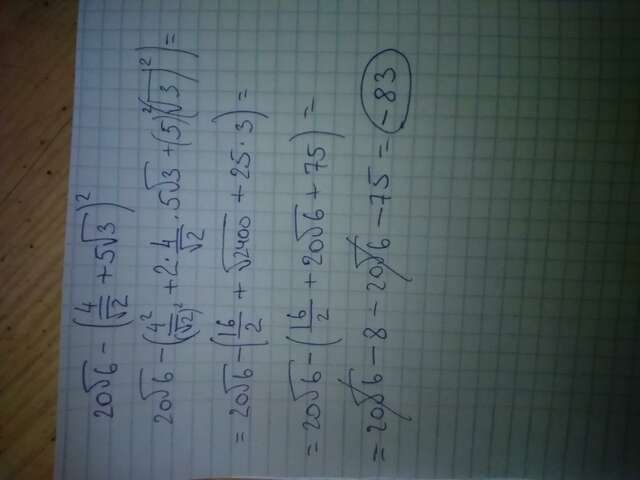 20√6 − (4/√2 + 5√3)²
20√6 − (4²/(√2)² + 2·4/√2·5√3 + (5)²(√3)²) =
= 20√6 − (16/2 + √2400 + 25·3) =
= 20√6 − (16/2 + 20√6 + 75) =
= 20√6 − 8 − 20√6 − 75 = −83